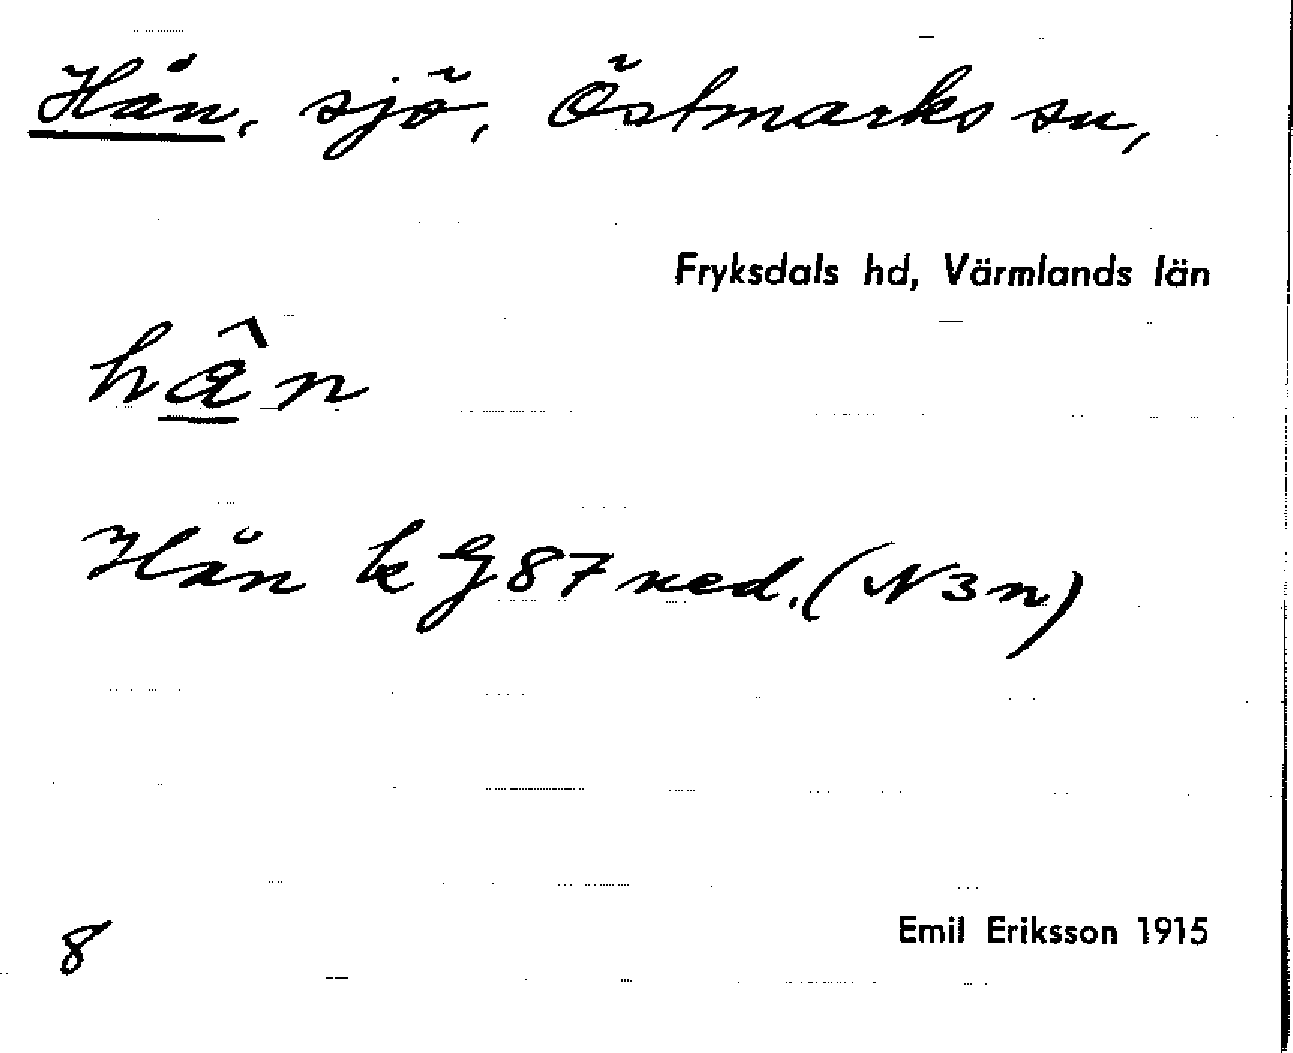 Hån, sjö, Östmarks sn,
Fryksdals hd, Värmlands län
hân
Hån k G 87 ned. (N 3 n)
8
Emil Eriksson 1915